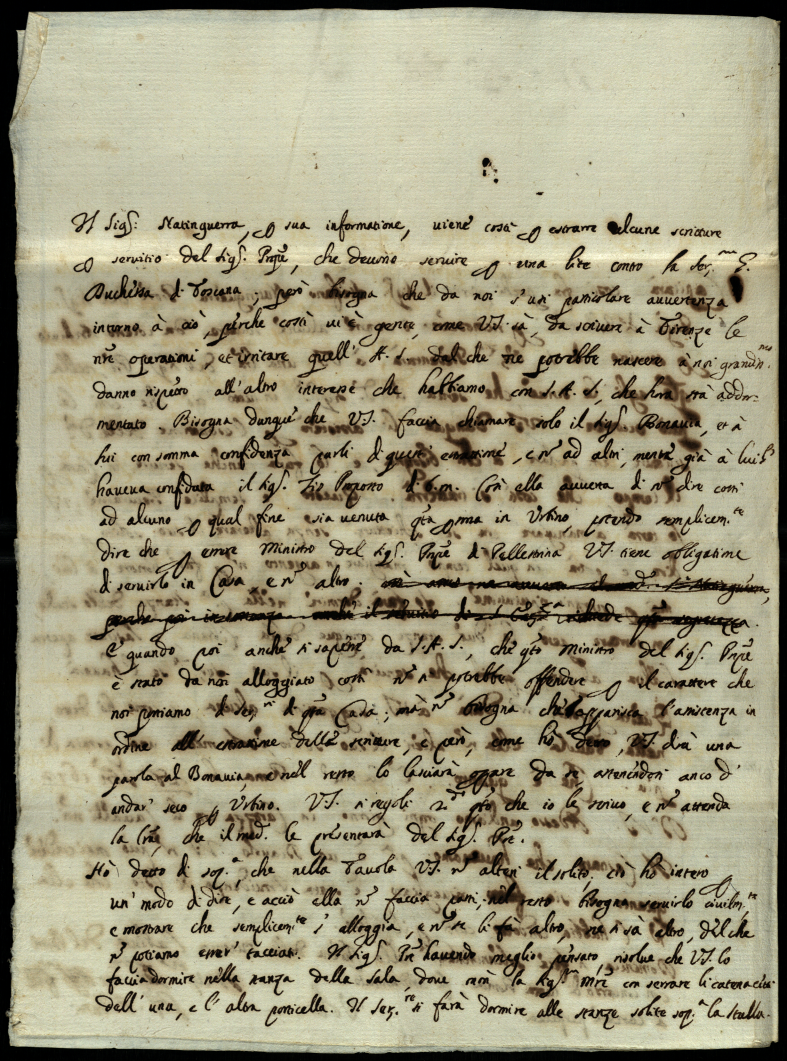 Il Sig.r Matinguerra, p sua informatione, viene costì p estrarre alcune scritture
p servitio del Sig.r Pnpe, che devono servire p una lite contro la Ser.ma G.
Duchessa di Toscana; però bisogna che da noi s'usi particolare avvertenza
intorno à ciò, perche costì vi è gente, come VS. sà, da scrivere à Firenze le
nre operationi, et irritare quell' A. S. dal che ne potrebbe nascere à noi grandis.mo
danno rispetto all'altro interesse che habbiamo con S.A.S., che hora stà addor-
mentato. Bisogna dunque che VS. faccia chiamare solo il Sig.r Bonavia, et à
lui con somma confidenza parli di questa estrattione, e nò ad altri, mentre già à lui
haveva confidata il Sig.r Zio Proposto Così ella avverta di nò dire costì
ad alcuno p qual fine sia venuta qta psona in Urbino, potendo semplicem.te
dire che p essere Ministro del Sig.r Pnpe di Pellestrina VS. tiene obligatione
di servirlo in Casa, e nò altro.
E quando poi anche si sapesse da S.A.S., che qto Ministro del Sig.r Pnpe
è stato da noi alloggiato costì nò si potrebbe offendere p il carattere che
noi portiamo di Ser.ri di qta Casa; mà nò bisogna che apparisca l'assistenza in
ordine all'estrattione delle scritture, e però, come hò detto, VS. dirà una
parola al Bonavia e nel resto lo lasciarà oprare da se astenendosi anco d'
andar seco p Urbino. VS. si regoli qto che io le scrivo, e nò attenda
la lrã, che il med.o le presentarà del Sig.r Pre.
Hò detto di sop.a, che nella Tavola VS. nò alteri il solito; ciò hò inteso
un modo di dire, e acciò ella nò faccia pasti; nel resto bisogna servirlo civilm.te
e mostrare che semplicem.te s'alloggia, e nò se li fà altro, ne si sà altro, del che
nò potiamo esser tacciati. Il Sig.r Pre havendo meglio pensato, risolve che VS. lo
faccia dormire nella stanza della sala, dove morì la Sig.ra Mre con serrare li catenacci
dell'una, e l'altra porticella. Il Ser.re si farà dormire alle stanze solite sop.a la stalla.